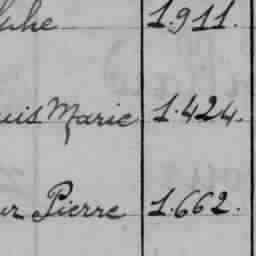 1.911.
uis Marie 1.424.
Pierre 1.662.